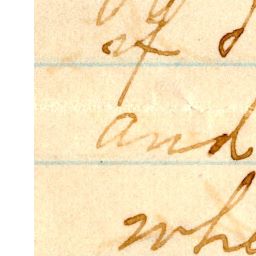 of
and
whe